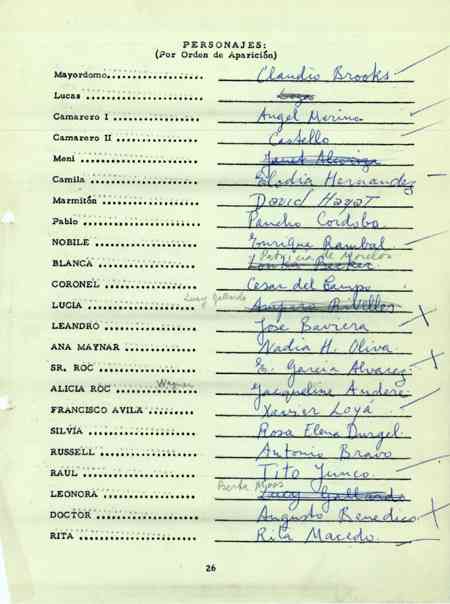 PERSONAJES:
(Por Orden de Aparición)
Mayordomo.................... Claudio Brooks
Lucas .................... Loya
Camarero I .................... Angel Merino
Camarero II .................... Castello
Meni ....................
Camila .................... Elodia Hernandez
Marmitón .................... David Hayat
Pablo .................... Pancho Cordoba
NOBILE .................... Enrique Rambal
Patricia de Morelos
BLANCA .................... Becker
CORONEL .................... Cesar del Campo
LUCIA .................... Lucy Gallardo Amparo Rivelles
LEANDRO .................... Jose Baviera
ANA MAYNAR .................... Nadia H. Oliva
SR. ROC .................... E. Garcia Alvarez
Wagner
ALICIA ROC .................... Jacqueline Andere
FRANCISCO AVILA .................... Xavier Loyá
SILVIA .................... Rosa Elena Durgel
RUSSELL .................... Antonio Bravo
RAUL .................... Tito Junco
Berta Moss
LEONORA .................... Lucy Gallardo
DOCTOR .................... Augusto Benedico
RITA .................... Rita Macedo
26